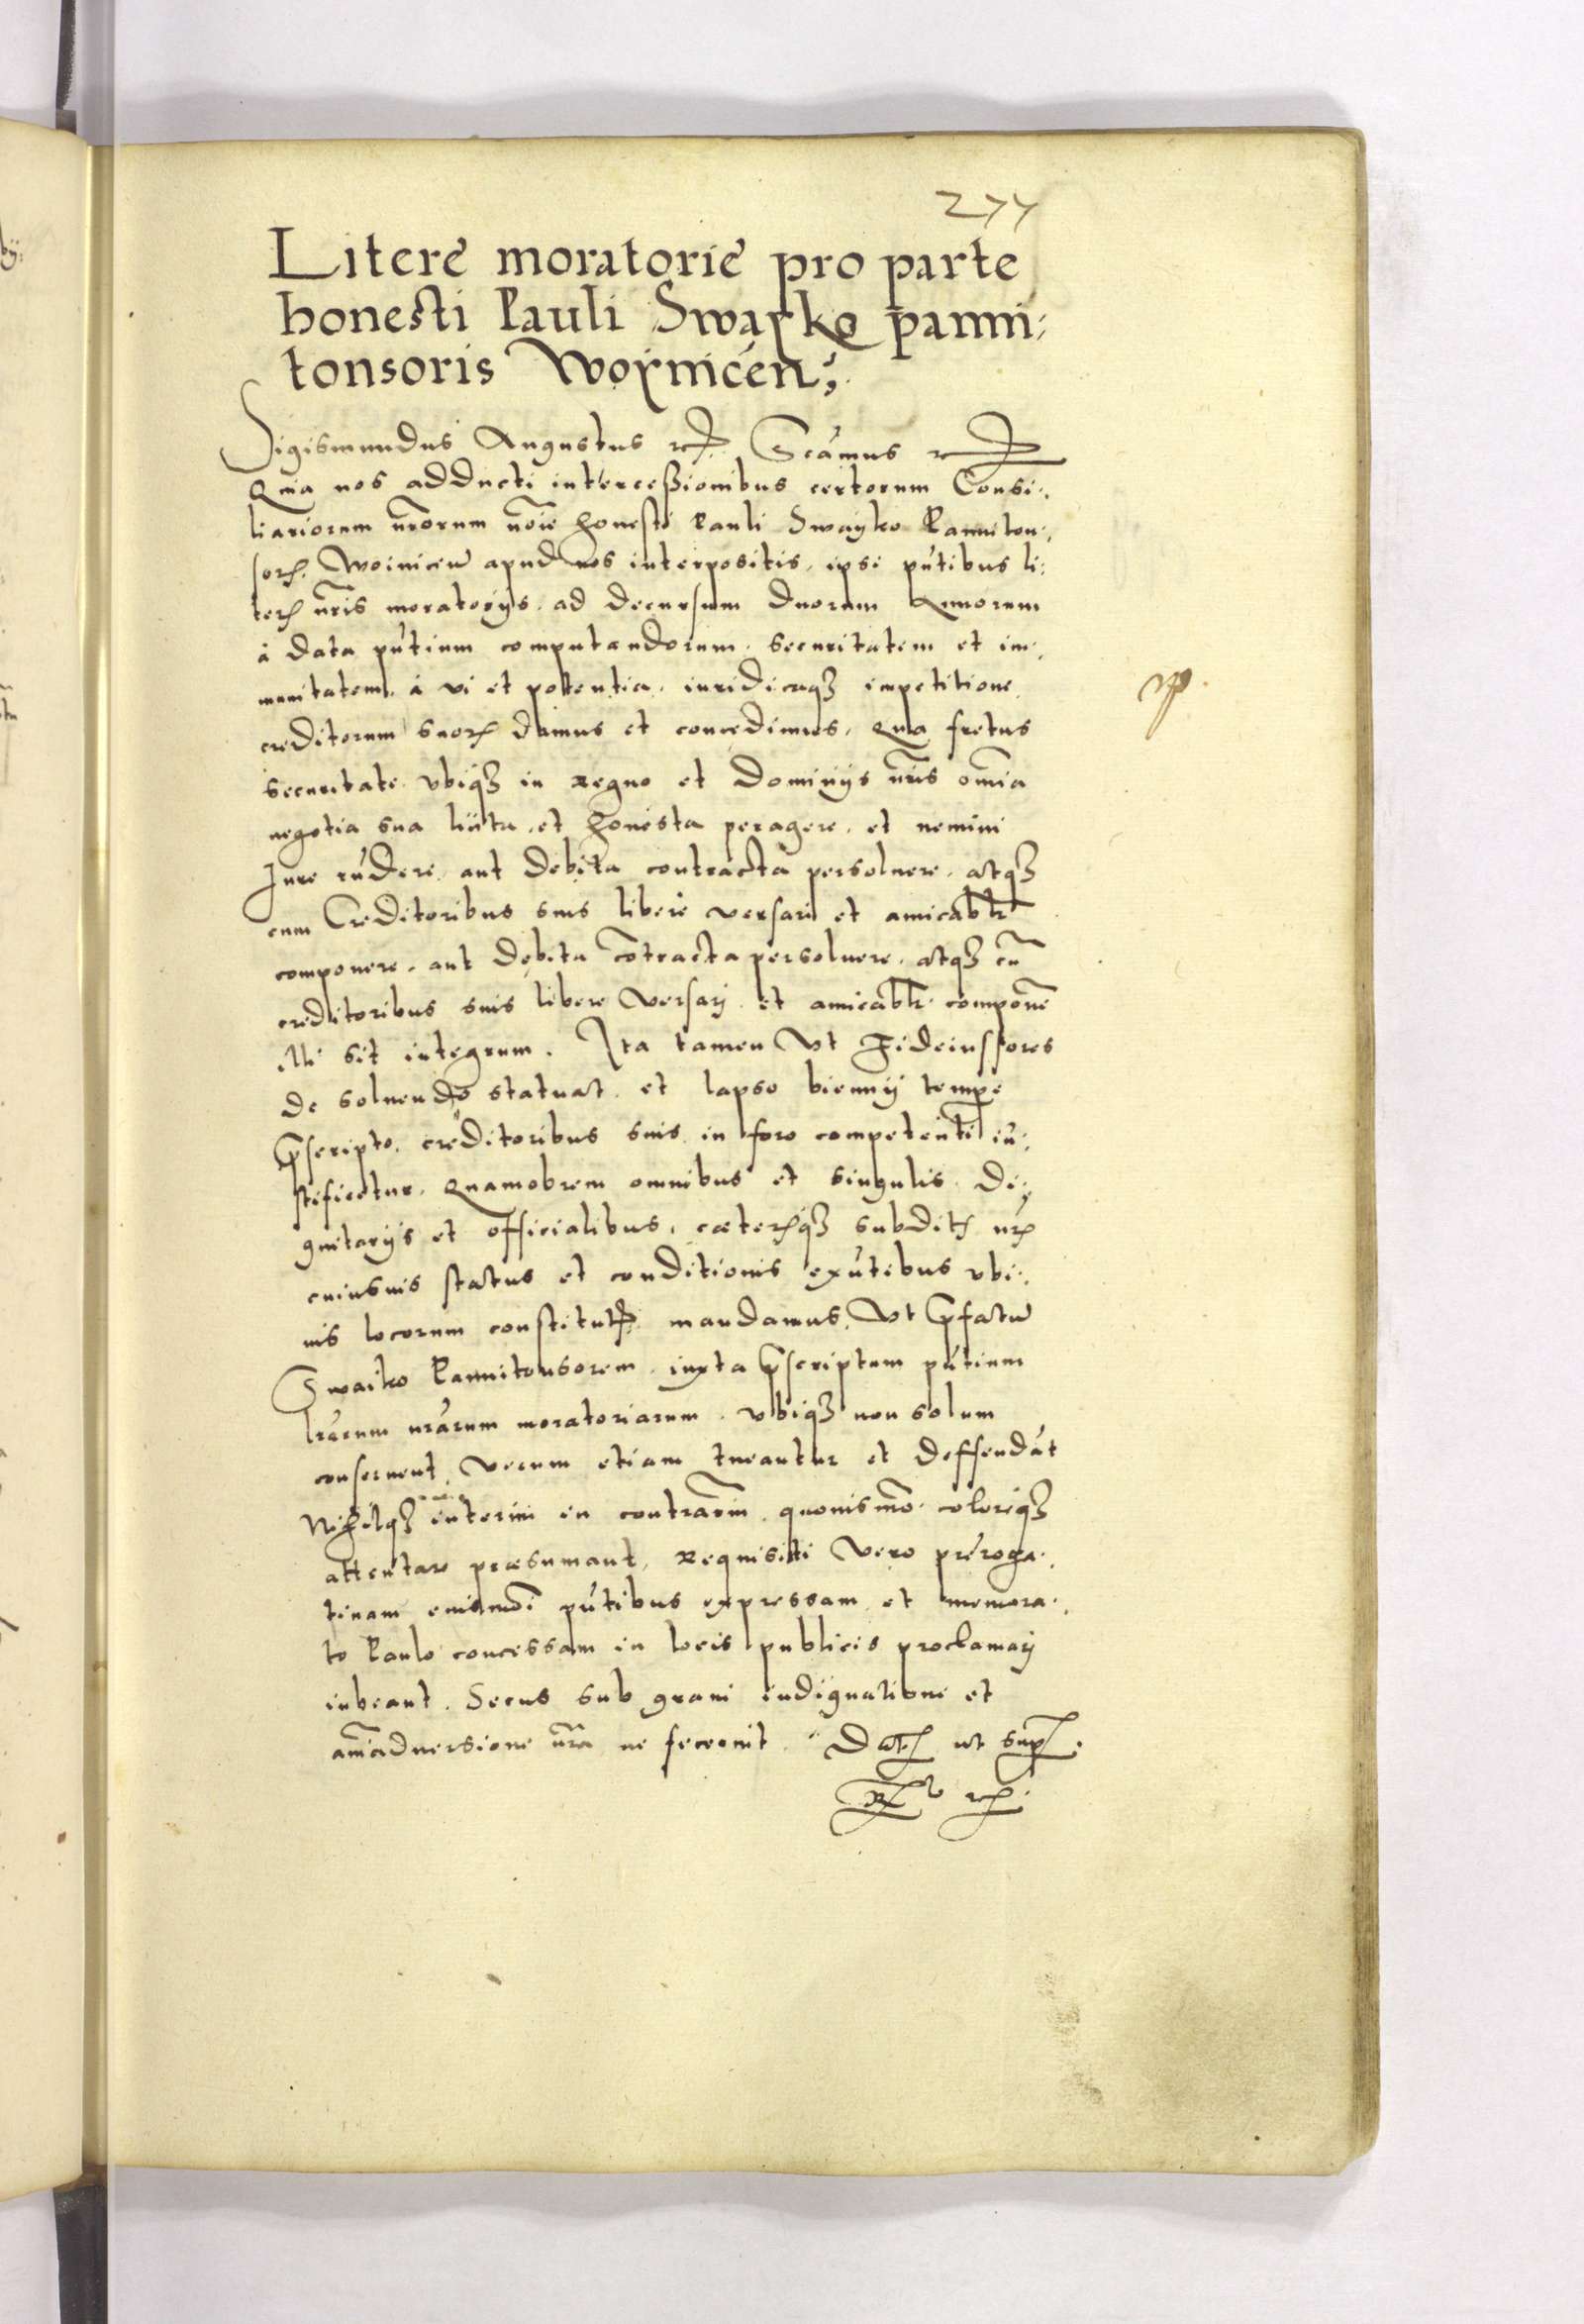 277
Litere moratorie pro parte
honesti Pauli Swayko panni:
tonsoris Woynicen:
Sigismundus Augustus etc. Scamus etc.
Quia nos adducti intercessionibus certorum Consi:
liariorum nrorum noie honesti Pauli Swayko Panniton:
sor. Woinicen apud nos interpositis, ipsi pntibus li:
ter nris moratorijs. ad decursum duorum Annorum
à data pntium computandorum. securitatem et im:
munitatem. à vi et potentia. iuridicaqz impetitione
creditorum suor damus et concedimus, Qua fretus
securitate vbiqz in regno et dominijs nris omia
negotia sua licita et honesta peragere. et nemini
Jure rndere aut debita contracta persoluere. atqz
cum Creditoribus suis libere versari et amicablr
componere. aut debita contracta persoluere. atqz cu
creditoribus suis libere versarj et amicablr componere
illi sit integrum. Ita tamen vt Fideiussores
de soluendo statuat. et lapso biennij tempe
prescripto. creditoribus suis in foro competenti iu:
stificetur. Quamobrem omnibus et singulis Di:
gnitarijs et officialibus. cæterisqz subdit nr
cuiusuis status et conditionis exntibus vbi:
uis locorum constitut. mandamus. Vt prefatu
Swaiko Pannitonsorem. iuxta prescriptum pntium
lrarum nrarum moratoriarum. vbiqz non solum
conseruent, verum etiam tueantur et deffendat
Nihilqz interim in contrarim quouismo. coloreqz
attentare præsumant, requisiti vero preroga:
tiuam eiusmoi pntibus expressam et memora:
to Paulo concessam in locis publicis proclamarj
iubeant. Secus sub graui indignatione et
aniaduersione nra ne fecerint. Dat ut supr.